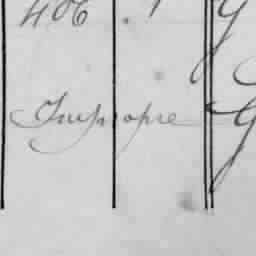 406
Impropre